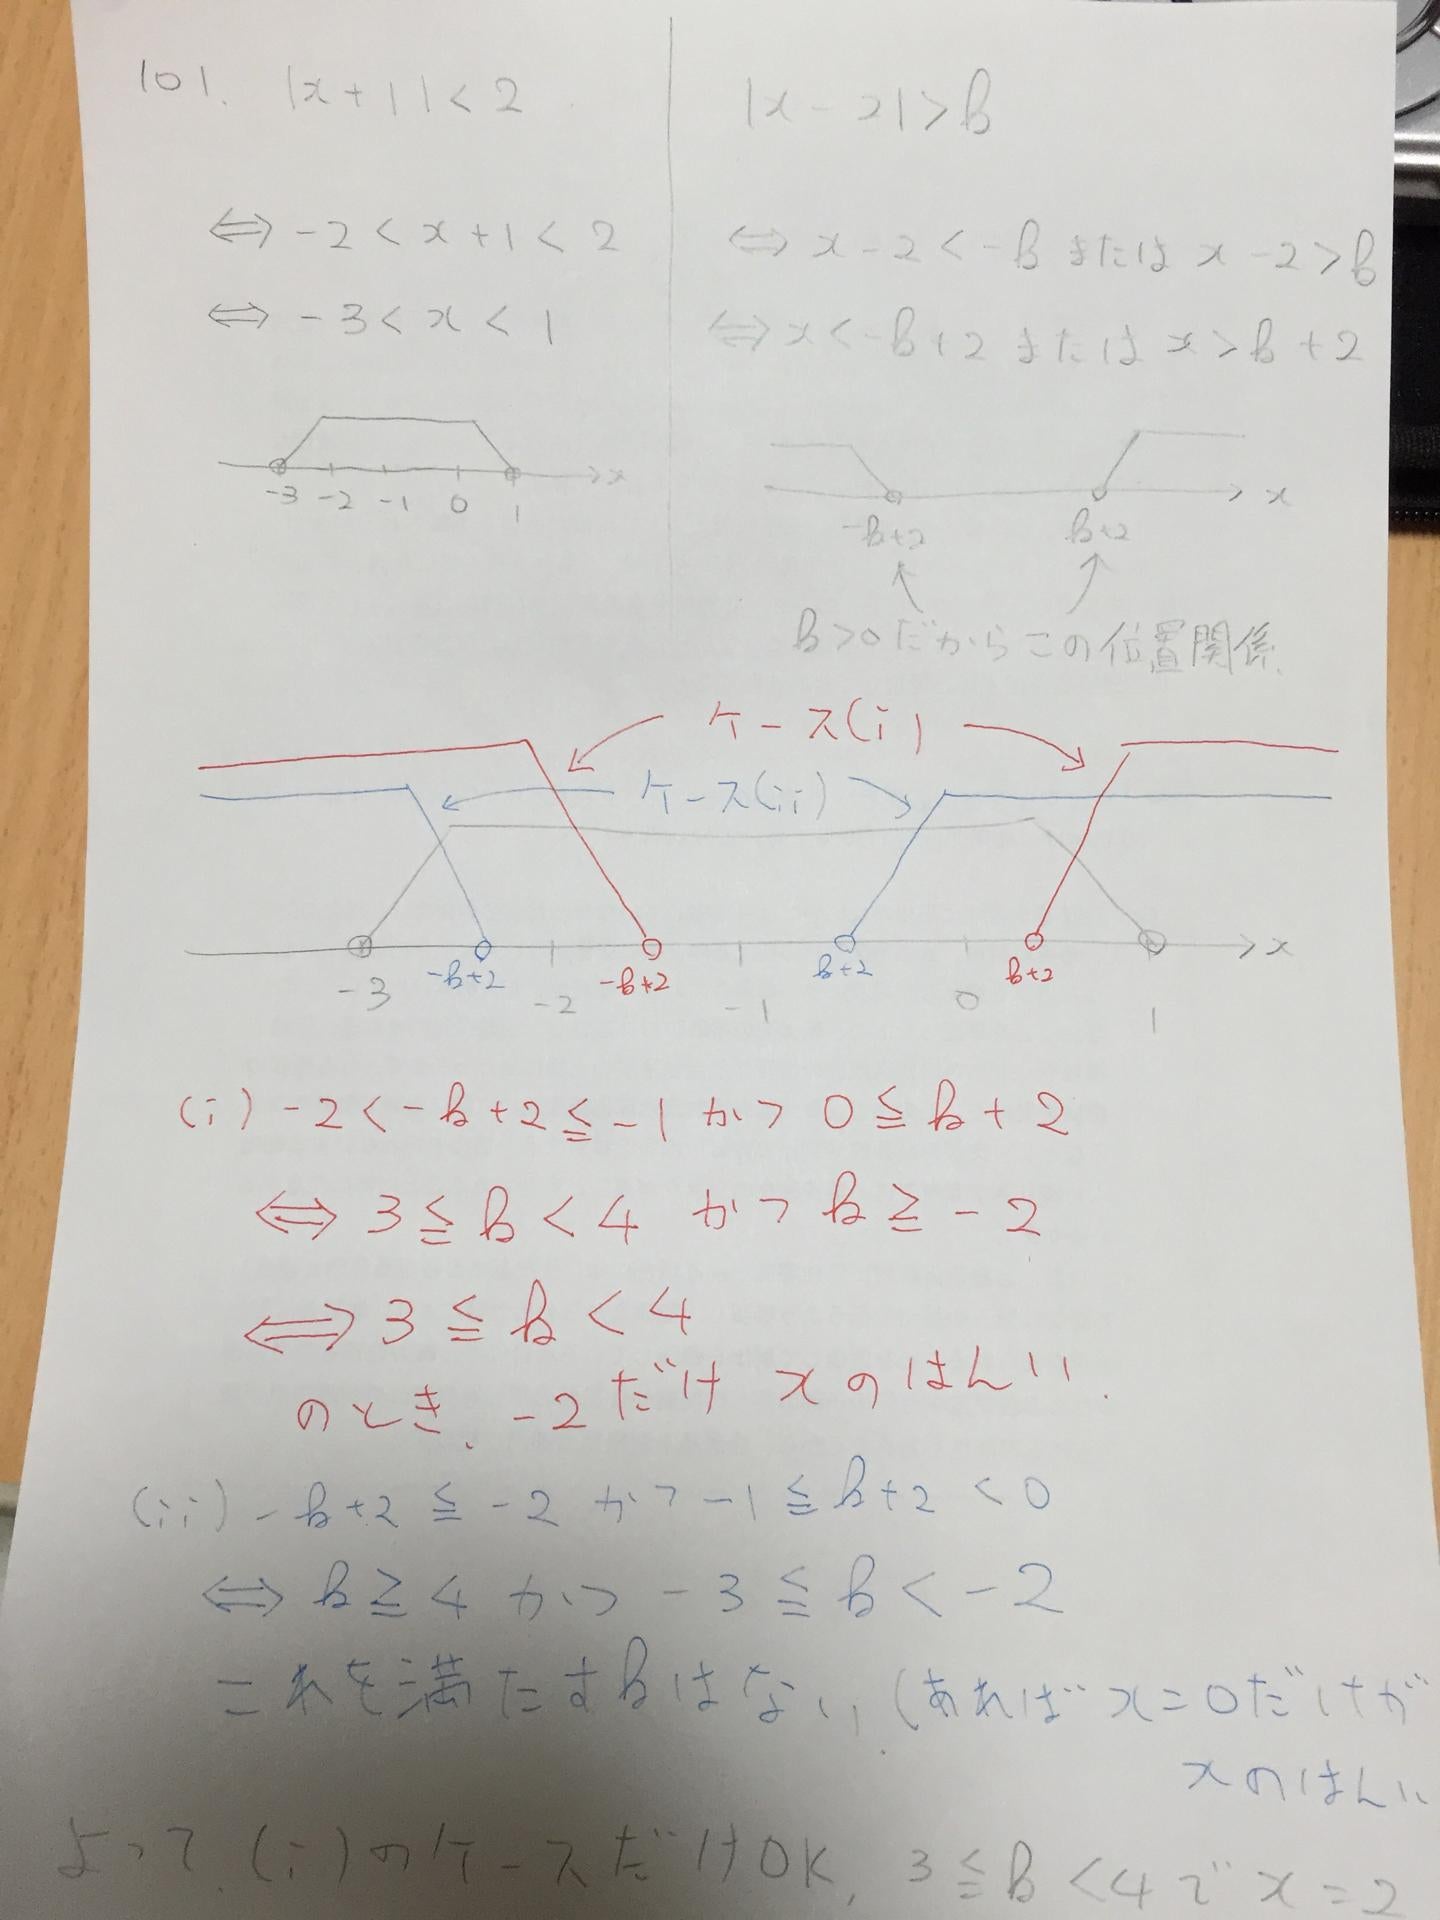 101. |x+1|<2
⇔ -2<x+1<2
⇔ -3<x<1
-3 -2 -1 0 1 x
|x-2|>k
⇔ x-2<-k または x-2>k
⇔ x<-k+2 または x>k+2
-k+2 k+2 x
k>0だからこの位置関係.
ケース(i)
ケース(ii)
-3 -k+2 -2 -k+2 -1 k+2 0 k+2 1 x
(i) -2<-k+2≦-1 かつ 0≦k+2
⇔ 3≦k<4 かつ k≧-2
⇔ 3≦k<4
のとき、-2だけ xのはんい.
(ii) -k+2≦-2 かつ -1≦k+2<0
⇔ k≧4 かつ -3≦k<-2
これを満たすkはない.(あれば x=0だけが
xのはんい
よって、(i)のケースだけOK, 3≦k<4で x=2